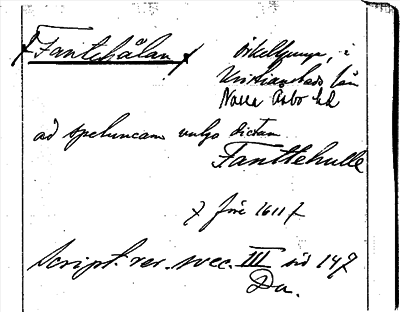 Fantehålan
Örkelljunga, i
Kristianstads län
Norra Åsbo hd
ad speluncam vulgo dictam
Fanttehulle
7 före 1611 7
Script. rer. svec. III sid 147
Da.